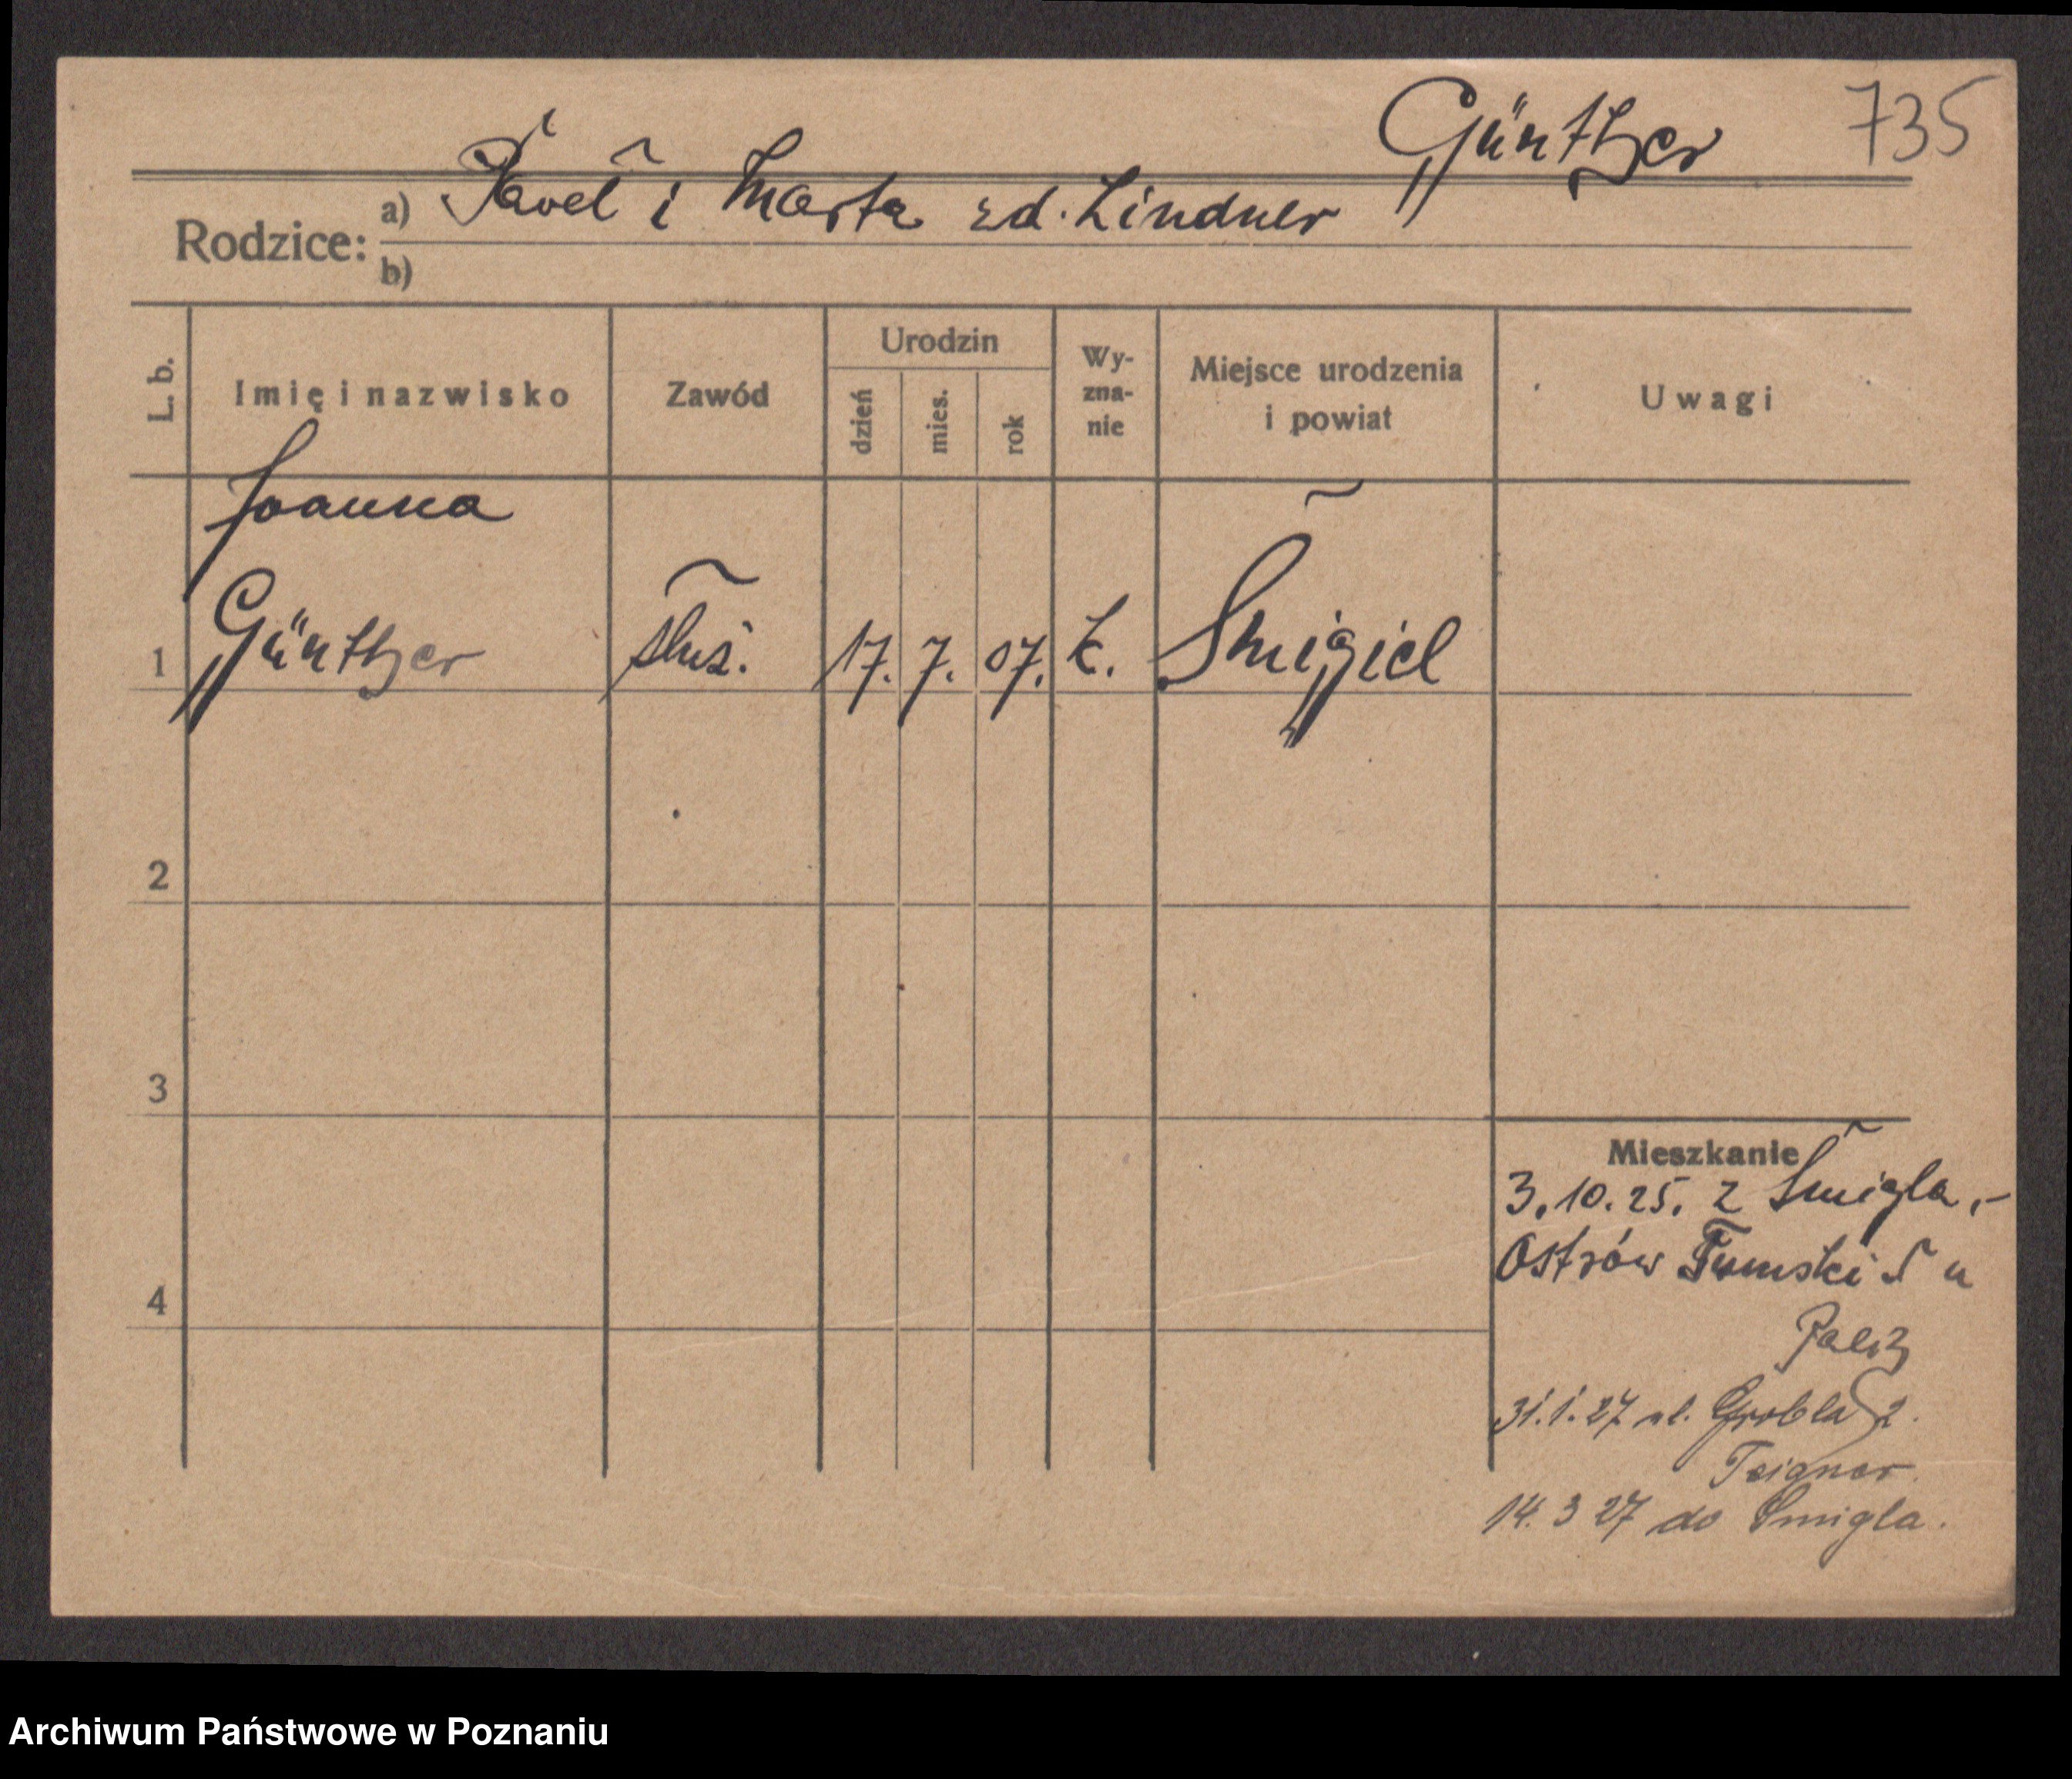 Günther 735
Rodzice: a) Paweł i Marta zd. Lindner
b)
L. b. Imię i nazwisko Zawód Urodzin dzień mies. rok Wy-zna-nie Miejsce urodzenia i powiat Uwagi
Joanna
1 Günther służ. 17. 7. 07. k. Śmigiel
2
3
Mieszkanie
3.10.25. z Śmigla,-
Ostrów Tumski 5 u
4
31.1.27 ul. Grobla 2.
14. 3 27 do Smigla.
Archiwum Państwowe w Poznaniu